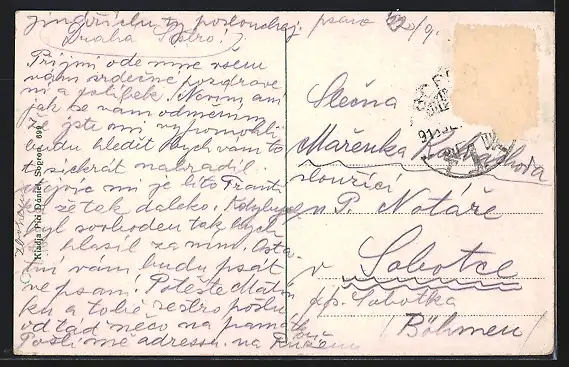 jindřichu ty poslouchej. psáno 20/9.
Drahá Sestro!
Přijmi ode mne všem
vám srdečné pozdrave
ní a políbek. Nevím, ani
jak se vám odměním
že jste mi vypomohli
budu hledit bych vám to
tisíckrát nahradil.
mi je líto Franti
že tak daleko. Kdyby
byl svoboden tak bych
hlásil za ním. Osta-
tní vám budu psát
psaní. Potěšte Matin
ku a tobě sestro pošlu
odtad něco na památ
Pošli mě adresu na
Kiadja Piri Dániel, Sopron. 699
Slečna
Mařenka
sloužící
u P. Notáře
v Sobotce
p. Sobotka
(Böhmen)